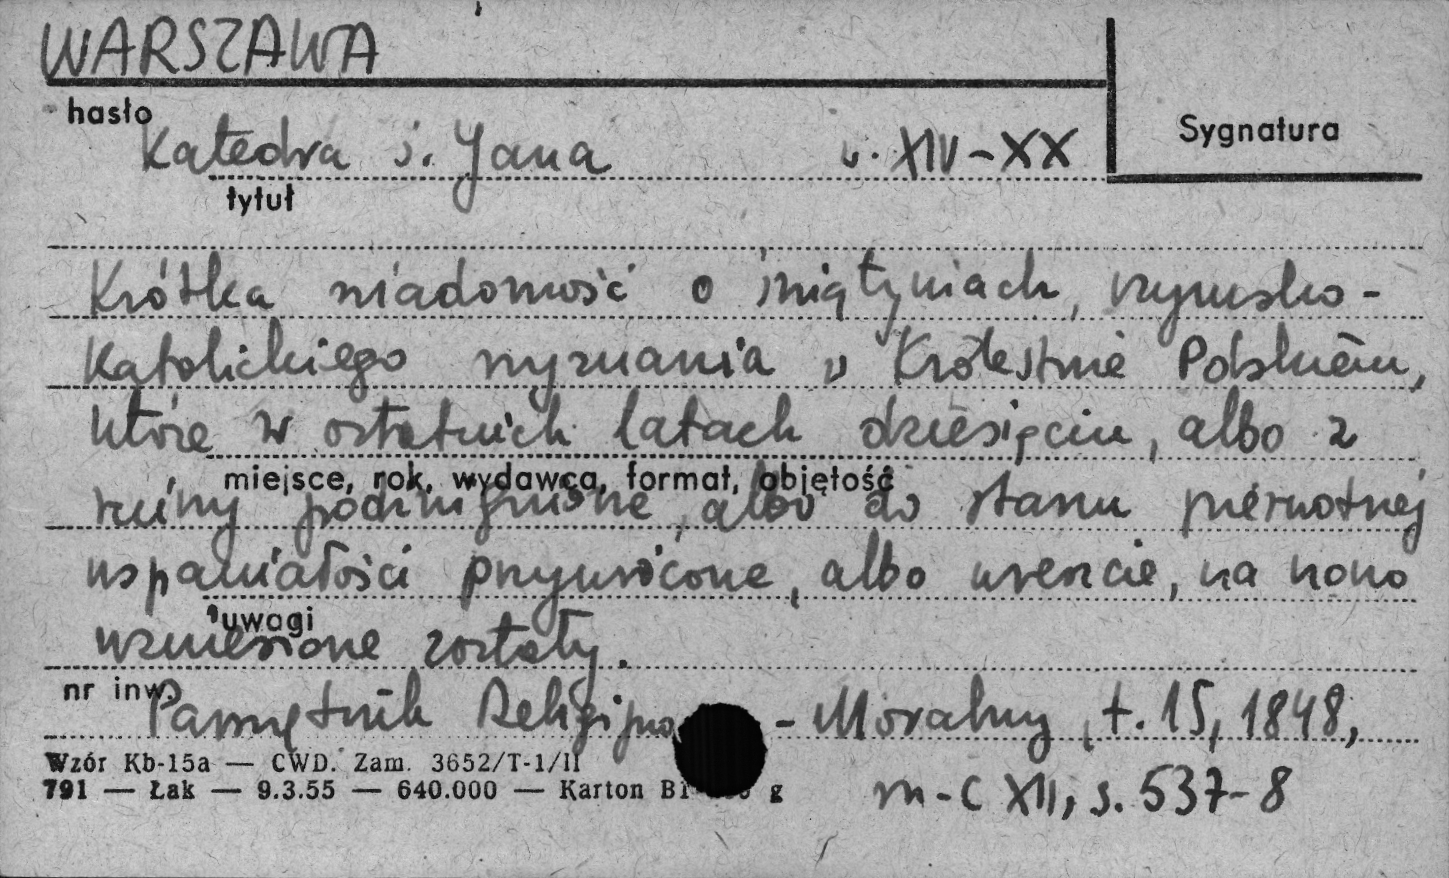 WARSZAWA
hasło
Sygnatura
Katedra ś. Jana w. XIV-XX
tytuł
Krótka wiadomość o świątyniach, rzymsko-
katolickiego wyznania w Królestwie Polskiém,
które w ostatnich latach dziesięciu, albo z
miejsce, rok, wydawca, format, objętość
ruiny podźwignione, albo do stanu pierwotnej
wspaniałości przywrócone, albo wreszcie, na nowo
uwagi
wzniesione zostały.
nr inw.
Pamiętnik Religijno-Moralny, t. 15, 1848,
Wzór Kb-15a — CWD. Zam. 3652/T-1/II
791 — Łak — 9.3.55 — 640.000 — Karton g
m-c XII, s. 537-8